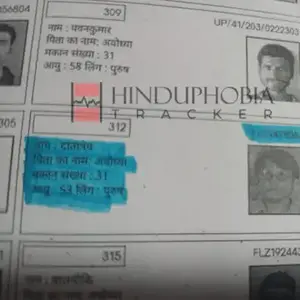 56804
309
UP/41/203/0222303
नाम : पवनकुमार
पिता का नाम: अयोध्या
मकान संख्या : 31
आयु : 58 लिंग : पुरुष
HINDUPHOBIA
TRACKER
305
312
नाम : दत्तात्रेय
पिता का नाम: अयोध्या
मकान संख्या : 31
आयु : 53 लिंग : पुरुष
315
FLZ19244
नाम : वाल्मीकि